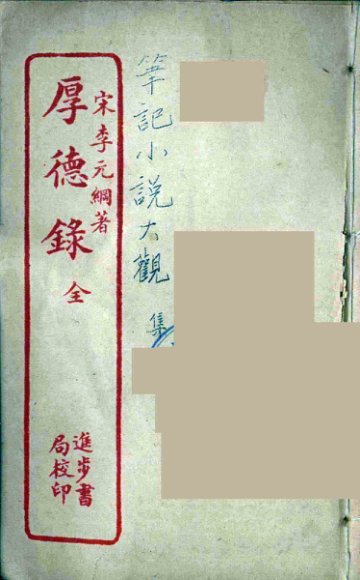 筆記小說大觀
集
宋李元綱著
厚德錄 全
進步書
局校印